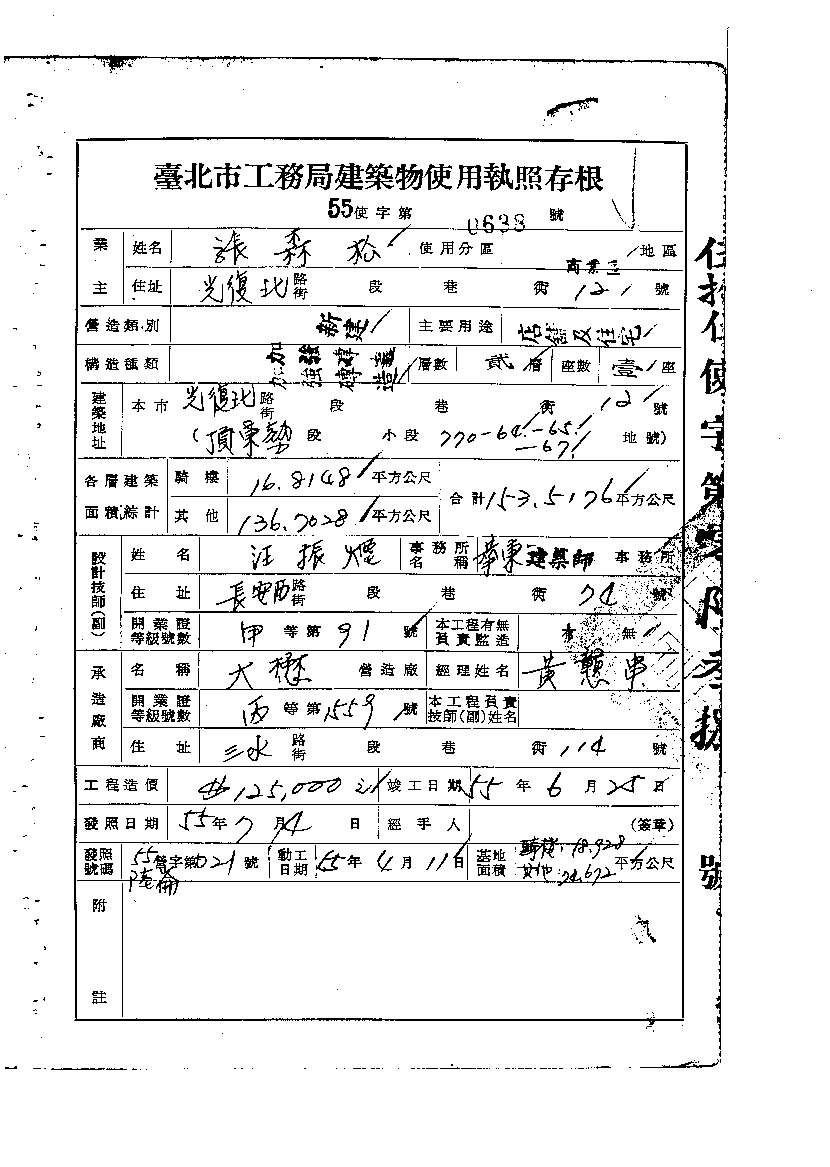 臺北市工務局建築物使用執照存根
55使字第 0638 號
業主 姓名 張森松 使用分區 商業區 地區
住址 光復北路街 段 巷 衖 12 號
營造類別 新建 主要用途 店舖及住宅
構造種類 加強磚造 加強磚造 層數 貳層 座數 壹座
建築地址 本市 光復北路街 段 巷 衖 12 號
(頂東勢段 小段 770-64.-65.-67. 地號)
各層建築面積綜計 騎樓 16.8148 平方公尺 合計 153.5176 平方公尺
其他 136.7028 平方公尺
設計技師(副) 姓名 汪振煙 事務所名稱 華東建築師事務所
住址 長安西路街 段 巷 衖 74 號
開業證等級號數 甲等第91號 本工程有無負責監造 有 無
承造廠商 名稱 大 營造廠 經理姓名 黃 串
開業證等級號數 丙等第1559號 本工程負責技師(副)姓名
住址 三水路街 段 巷 衖 114 號
工程造價 125,000 竣工日期 55年6月25日
發照日期 55年7月4日 經手人 (簽章)
發照號碼 55營字第021號 動工日期 55年4月11日 基地面積 騎樓.18.928 其他 74.672 平方公尺
附註
使字第零陸叁捌號